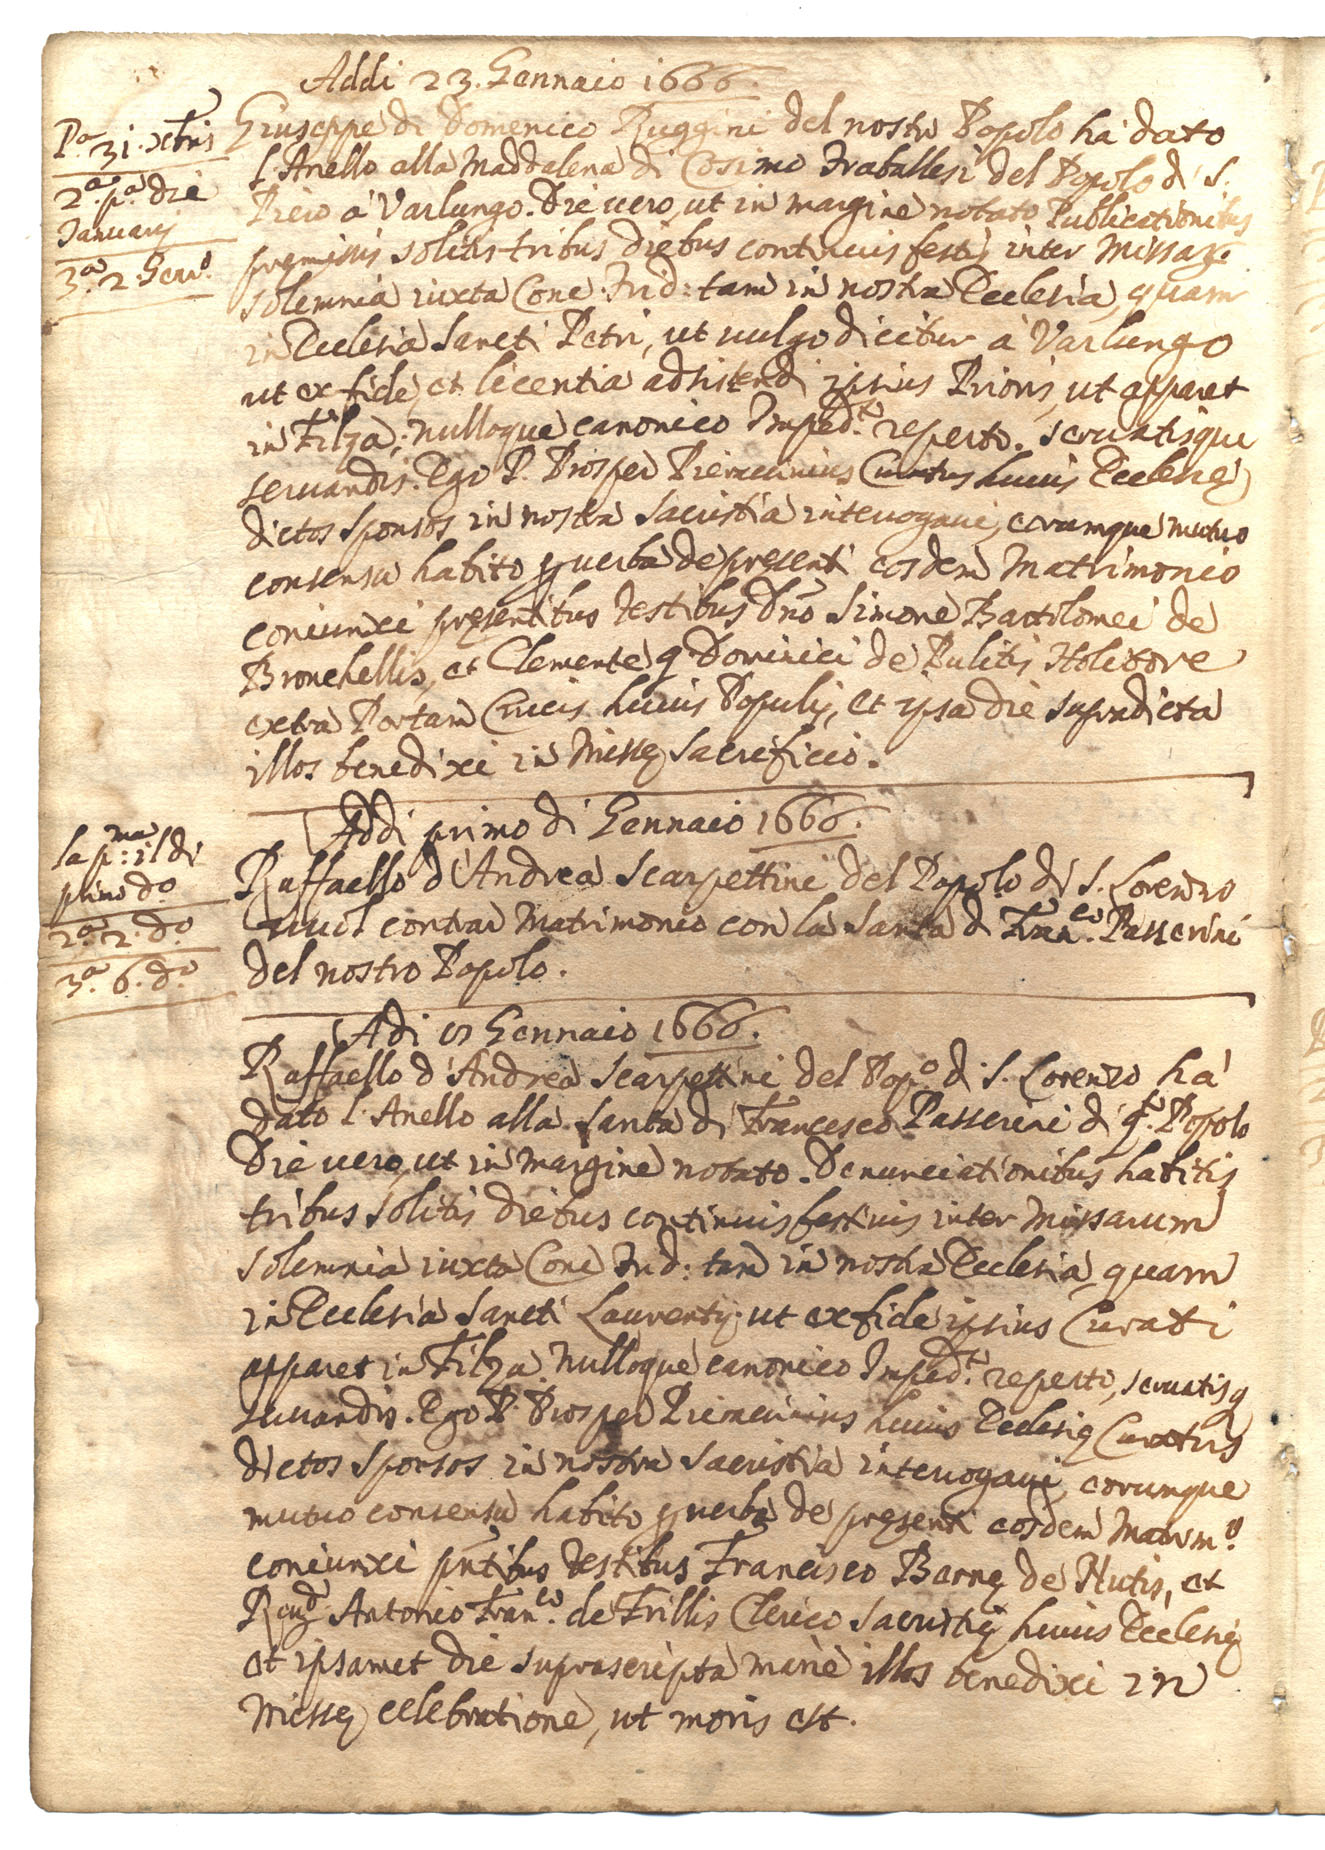 Addi 23. Gennaio 1666.
P.a 31. xbris
2.a p.a die
Januarij
3.a 2. Genn.o
Giuseppe di Domenico Ruggini del nostro Popolo hà dato
l'Anello alla Maddalena di Cosimo Traballesi del Popolo di S.
Piero à Varlungo. Die uero, ut in margine notato Publicationibus
premissis solitis tribus diebus continuis festis inter Missar.
solemnia iuxta Conc. Trid: tam in nostra Ecclesia, quam
in Ecclesia Sancti Petri, ut uulgo dicitur à Varlungo
ut ex fide, et licentia adsistendi ipsius Prioris, ut apparet
in Filza; nulloque canonico Imped.to reperto. seruatisque
seruandis. Ego P. Prosper Curatus huius Ecclesię
dictos sponsos in nostra Sacristia interrogaui, eorumque mutuo
consensu habito p uerba de pręsenti eosdem Matrimonio
coniunxi pręsentibus testibus Dno Simone Bartolomei de
Bronchellis, et Clemente q Dominici de Pulitis Holitore
extra Portam Crucis huius Populi, et ipsa die supradicta
illos benedixi in Missę sacrificio.
Addi primo di Gennaio 1666.
la p:ma il di
primo d.o
2.a 2. d.o
3.a 6. d.o
Raffaello d'Andrea Scarpettini del Popolo di S. Lorenzo
uuol contrar Matrimonio con la Santa di Fran.co Passerini
del nostro Popolo.
Adi Gennaio 1666.
Raffaello d'Andrea Scarpettini del Pop.o di S. Lorenzo hà
dato l'Anello alla Santa di Francesco Passerini di q.to Popolo
Die uero, ut in margine notato. Denunciationibus habitis
tribus solitis diebus continuis festiuis inter Missarum
solemnia iuxta Conc Trid: tam in nostra Ecclesia, quam
in Ecclesia Sancti Laurentij. ut ex fide ipsius Curati
apparet in Filza. Nulloque canonico Imped.to reperto, seruatisq
seruandis. Ego P. Prosper huius Ecclesię Curatus
dictos sponsos in nostra Sacristia interrogaui, eorumque
mutuo consensu habito p uerba de pręsenti eosdem Matrim.o
coniunxi pntibus testibus Francisco Barnę de Nutis, et
Reud. Antonio Fran.co de Frillis Clerico Sacristię huius Ecclesię
et ipsamet die suprascripta manè illos benedixi in
Missę celebratione, ut moris est.